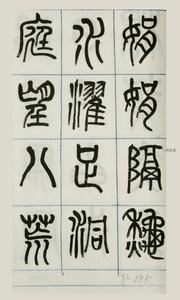 娟娟隔龝
水濯足洞
庭望八荒
P.185